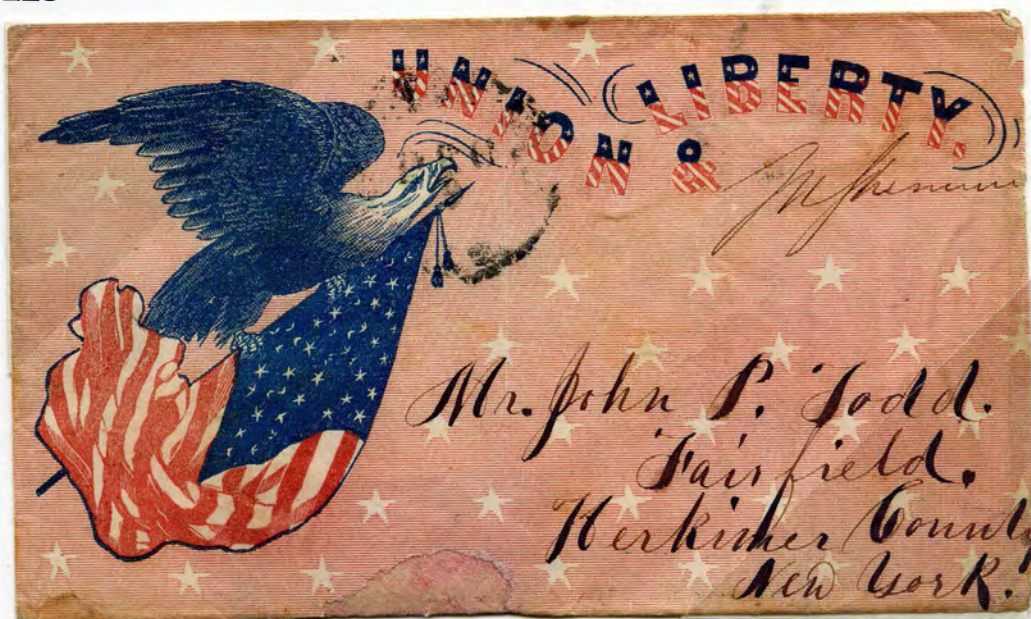 UNION & LIBERTY.
Mr. John P. Todd.
Fairfield.
Herkimer County
New York.